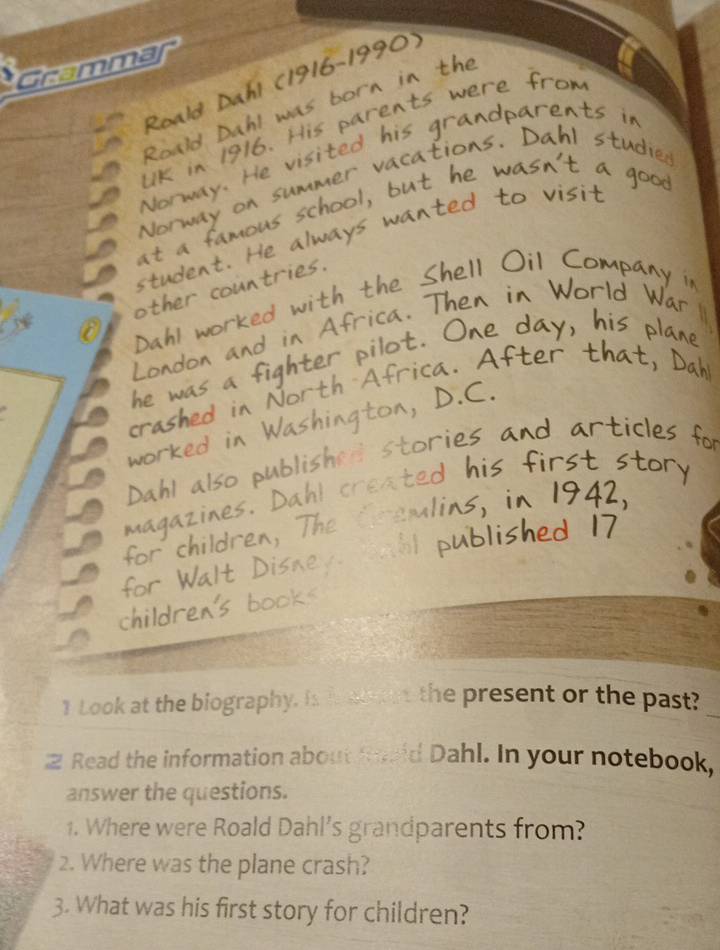 Grammar
Roald Dahl (1916-1990)
Roald Dahl was born in the
UK in 1916. His parents were from
Norway. He visited his grandparents in
Norway on summer vacations. Dahl studied
at a famous school, but he wasn't a good
student. He always wanted to visit
other countries.
Dahl worked with the Shell Oil Company in
London and in Africa. Then in World War II,
he was a fighter pilot. One day, his plane
crashed in North Africa. After that, Dahl
worked in Washington, D.C.
Dahl also published stories and articles for
magazines. Dahl created his first story
for children, The Gremlins, in 1942,
for Walt Disney. Dahl published 17
children's books
1 Look at the biography. Is it about the present or the past?
2 Read the information about Roald Dahl. In your notebook,
answer the questions.
1. Where were Roald Dahl's grandparents from?
2. Where was the plane crash?
3. What was his first story for children?